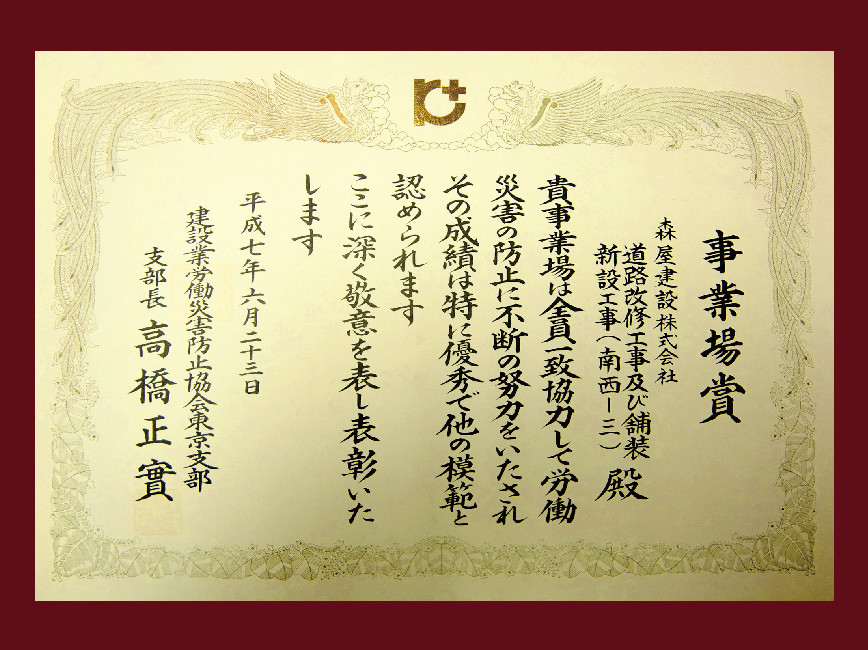 事業場賞
森屋建設株式会社
道路改修工事及び舗装
新設工事(南西ー三)殿
貴事業場は全員一致協力して労働
災害の防止に不断の努力をいたされ
その成績は特に優秀で他の模範と
認められます
ここに深く敬意を表し表彰いた
します
平成七年六月二十三日
建設業労働災害防止協会東京支部
支部長 高橋正實